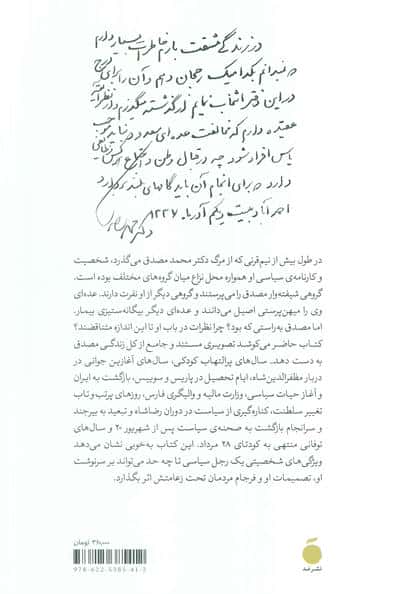 در زندگی مشقت بارم خاطرات بسیار دارم
و نمیدانم بکدامیک رجحان دهم و آن را برای درج
در این دفتر انتخاب نمایم از گذشته میگذرم و در نظر
عقیده دارم که مخالفت عده‌ای معدود نباید موجب
یأس افراد شود چه در قبال وطن و اجتماع هر کس وظایفی
دارد و برای انجام آن باید گامهای بلند بردارد
احمدآباد بیست و یکم آذرماه ۱۳۳۶
دکتر محمد مصدق
در طول بیش از نیم‌قرنی که از مرگ دکتر محمد مصدق می‌گذرد، شخصیت
و کارنامه‌ی سیاسی او همواره محل نزاع میان گروه‌های مختلف بوده است.
گروهی شیفته‌وار مصدق را می‌پرستند و گروهی دیگر از او نفرت دارند. عده‌ای
وی را میهن‌پرستی اصیل می‌دانند و عده‌ای دیگر بیگانه‌ستیزی بیمار.
اما مصدق به‌راستی که بود؟ چرا نظرات در باب او تا این اندازه متناقضند؟
کتاب حاضر می‌کوشد تصویری مستند و جامع از کل زندگی مصدق
به دست دهد. سال‌های پرالتهاب کودکی، سال‌های آغازین جوانی در
دربار مظفرالدین‌شاه، ایام تحصیل در پاریس و سوییس، بازگشت به ایران
و آغاز حیات سیاسی، وزارت مالیه و والیگری فارس، روزهای پرتب‌وتاب
تغییر سلطنت، کناره‌گیری از سیاست در دوران رضاشاه و تبعید به بیرجند
و سرانجام بازگشت به صحنه‌ی سیاست پس از شهریور ۲۰ و سال‌های
توفانی منتهی به کودتای ۲۸ مرداد. این کتاب به‌خوبی نشان می‌دهد
ویژگی‌های شخصیتی یک رجل سیاسی تا چه حد می‌تواند بر سرنوشت
او، تصمیمات او و فرجام مردمان تحت زعامتش اثر بگذارد.
۳۶۰,۰۰۰ تومان
978-622-5385-41-2
نشر مَد